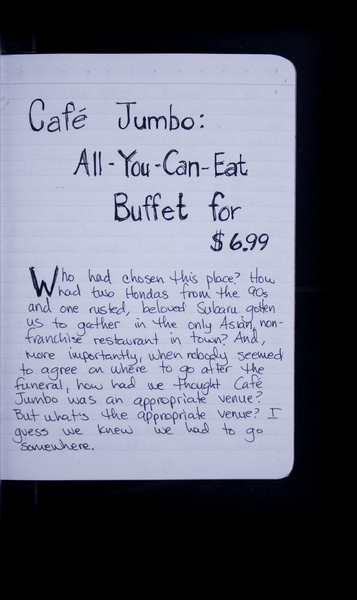 Café Jumbo:
All-You-Can-Eat
Buffet for
$6.99
Who had chosen this place? How
had two Hondas from the 90s
and one rusted, beloved Subaru gotten
us to gather in the only Asian, non-
franchise restaurant in town? And,
more importantly, when nobody seemed
to agree on where to go after the
funeral, how had we thought Café
Jumbo was an appropriate venue?
But what's the appropriate venue? I
guess we knew we had to go
somewhere.